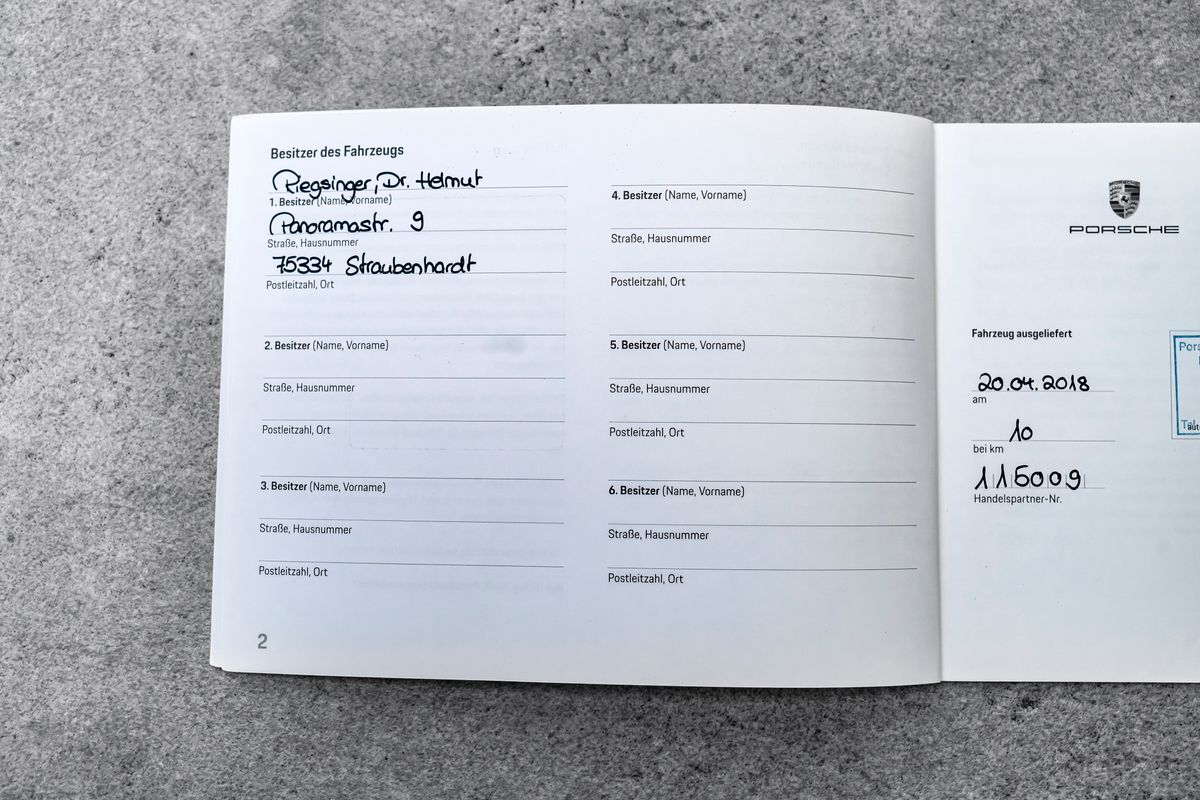 Besitzer des Fahrzeugs
Riegsinger, Dr. Helmut
1. Besitzer (Name, Vorname)
Panoramastr. 9
Straße, Hausnummer
75334 Straubenhardt
Postleitzahl, Ort
2. Besitzer (Name, Vorname)
Straße, Hausnummer
Postleitzahl, Ort
3. Besitzer (Name, Vorname)
Straße, Hausnummer
Postleitzahl, Ort
2
4. Besitzer (Name, Vorname)
Straße, Hausnummer
Postleitzahl, Ort
5. Besitzer (Name, Vorname)
Straße, Hausnummer
Postleitzahl, Ort
6. Besitzer (Name, Vorname)
Straße, Hausnummer
Postleitzahl, Ort
PORSCHE
Fahrzeug ausgeliefert
20.04.2018
am
10
bei km
115009
Handelspartner-Nr.